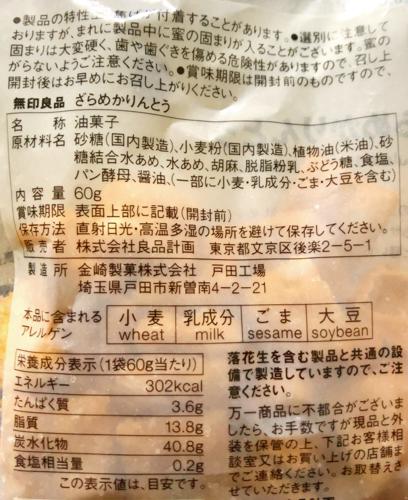 ●製品の特性上、蜜が付着することがあります。●選別に注意して
おりますが、まれに製品中に蜜の固まりが入ることがございます。蜜の
固まりは大変硬く、歯や歯ぐきを傷める危険性がありますので、召し上
がらないようご注意ください。●賞味期限は開封前のものですので、
開封後はお早めにお召し上がりください。
無印良品 ざらめかりんとう
名称 油菓子
原材料名 砂糖(国内製造)、小麦粉(国内製造)、植物油(米油)、砂
糖結合水あめ、水あめ、胡麻、脱脂粉乳、ぶどう糖、食塩、
パン酵母、醤油、(一部に小麦・乳成分・ごま・大豆を含む)
内容量 60g
賞味期限 表面上部に記載(開封前)
保存方法 直射日光・高温多湿の場所を避けて保存してください。
販売者 株式会社良品計画 東京都文京区後楽2-5-1
製造所 金崎製菓株式会社 戸田工場
埼玉県戸田市新曽南4-2-21
本品に含まれる
アレルゲン
小麦 wheat
乳成分 milk
ごま sesame
大豆 soybean
栄養成分表示(1袋60g当たり)
エネルギー 302kcal
たんぱく質 3.6g
脂質 13.8g
炭水化物 40.8g
食塩相当量 0.2g
この表示値は、目安です。
落花生を含む製品と共通の設
備で製造していますので、ご注
意ください。
万一商品に不都合がございま
したら、お手数ですが現品と外
装を保管の上、下記お客様相
談室又はお買い上げの店舗ま
でご連絡ください。お取替えさ
せていただきます。